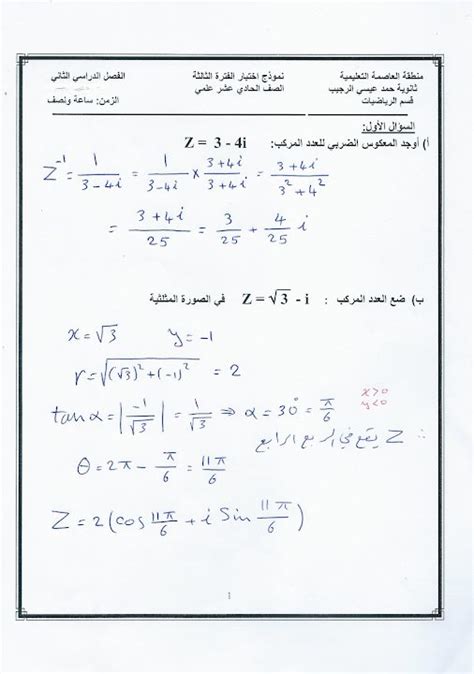 منطقة العاصمة التعليمية
ثانوية حمد عيسى الرجيب
قسم الرياضيات
نموذج اختبار الفترة الثالثة
الصف الحادي عشر علمي
الفصل الدراسي الثاني
الزمن: ساعة ونصف
السؤال الأول:
أ) أوجد المعكوس الضربي للعدد المركب: Z = 3 - 4i
Z⁻¹ = 1/(3-4i) = 1/(3-4i) × (3+4i)/(3+4i) = (3+4i)/(3²+4²)
= (3+4i)/25 = 3/25 + 4/25 i
ب) ضع العدد المركب : Z = √3 - i في الصورة المثلثية
x = √3 y = -1
r = √((√3)² + (-1)²) = 2
x>0
y<0
tan α = |-1/√3| = 1/√3 ⇒ α = 30° = π/6
∴ Z يقع في الربع الرابع
θ = 2π - π/6 = 11π/6
Z = 2(cos 11π/6 + i Sin 11π/6)
1